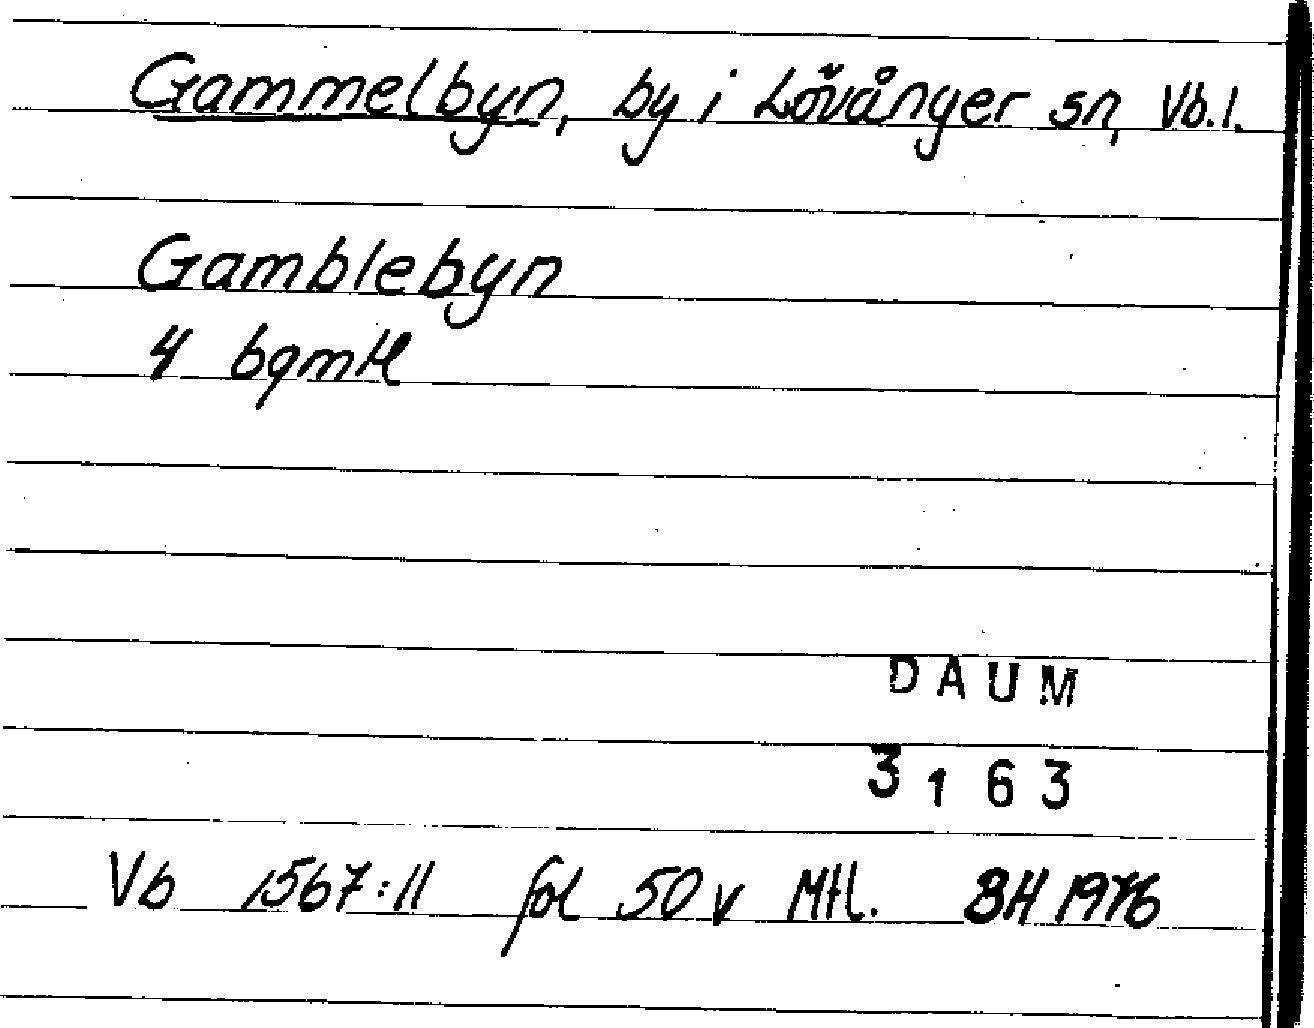 Gammelbyn, by i Lövånger sn, Vb.l.
Gamblebyn
4 bgmtl
DAUM
3163
Vb 1567:11 fol 50 v Mtl. BH 1976